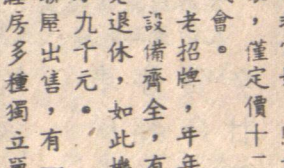 ，僅定價十二
會。
老招牌，年年
設備齊全，有
退休，如此機
九千元。
屋出售，有
房多種獨立單